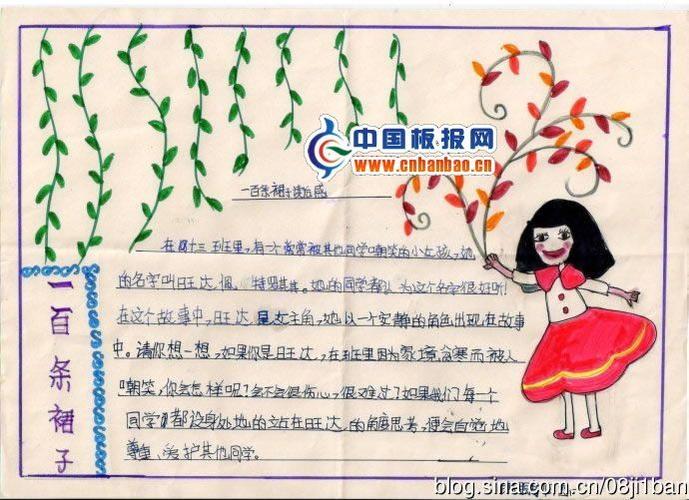 中国板报网
www.cnbanbao.cn
一百条裙子读后感
在 十三 班里，有一个常常被其他同学嘲笑的小女孩，她
的名字叫旺达 佩 特罗其。她的同学都认为这个名字很好听！
在这个故事中，旺达是女主角，她以一个安静的角色出现在故事
中。请你想一想，如果你是旺达，在班里因为家境贫寒而被人
嘲笑，你会怎样呢？会不会很伤心，很难过？如果我们每一个
同学都设身处地的站在旺达的角度思考，便会自觉地
尊重、爱护其他同学。
一百条裙子
blog.sina.com.cn/08ji1ban